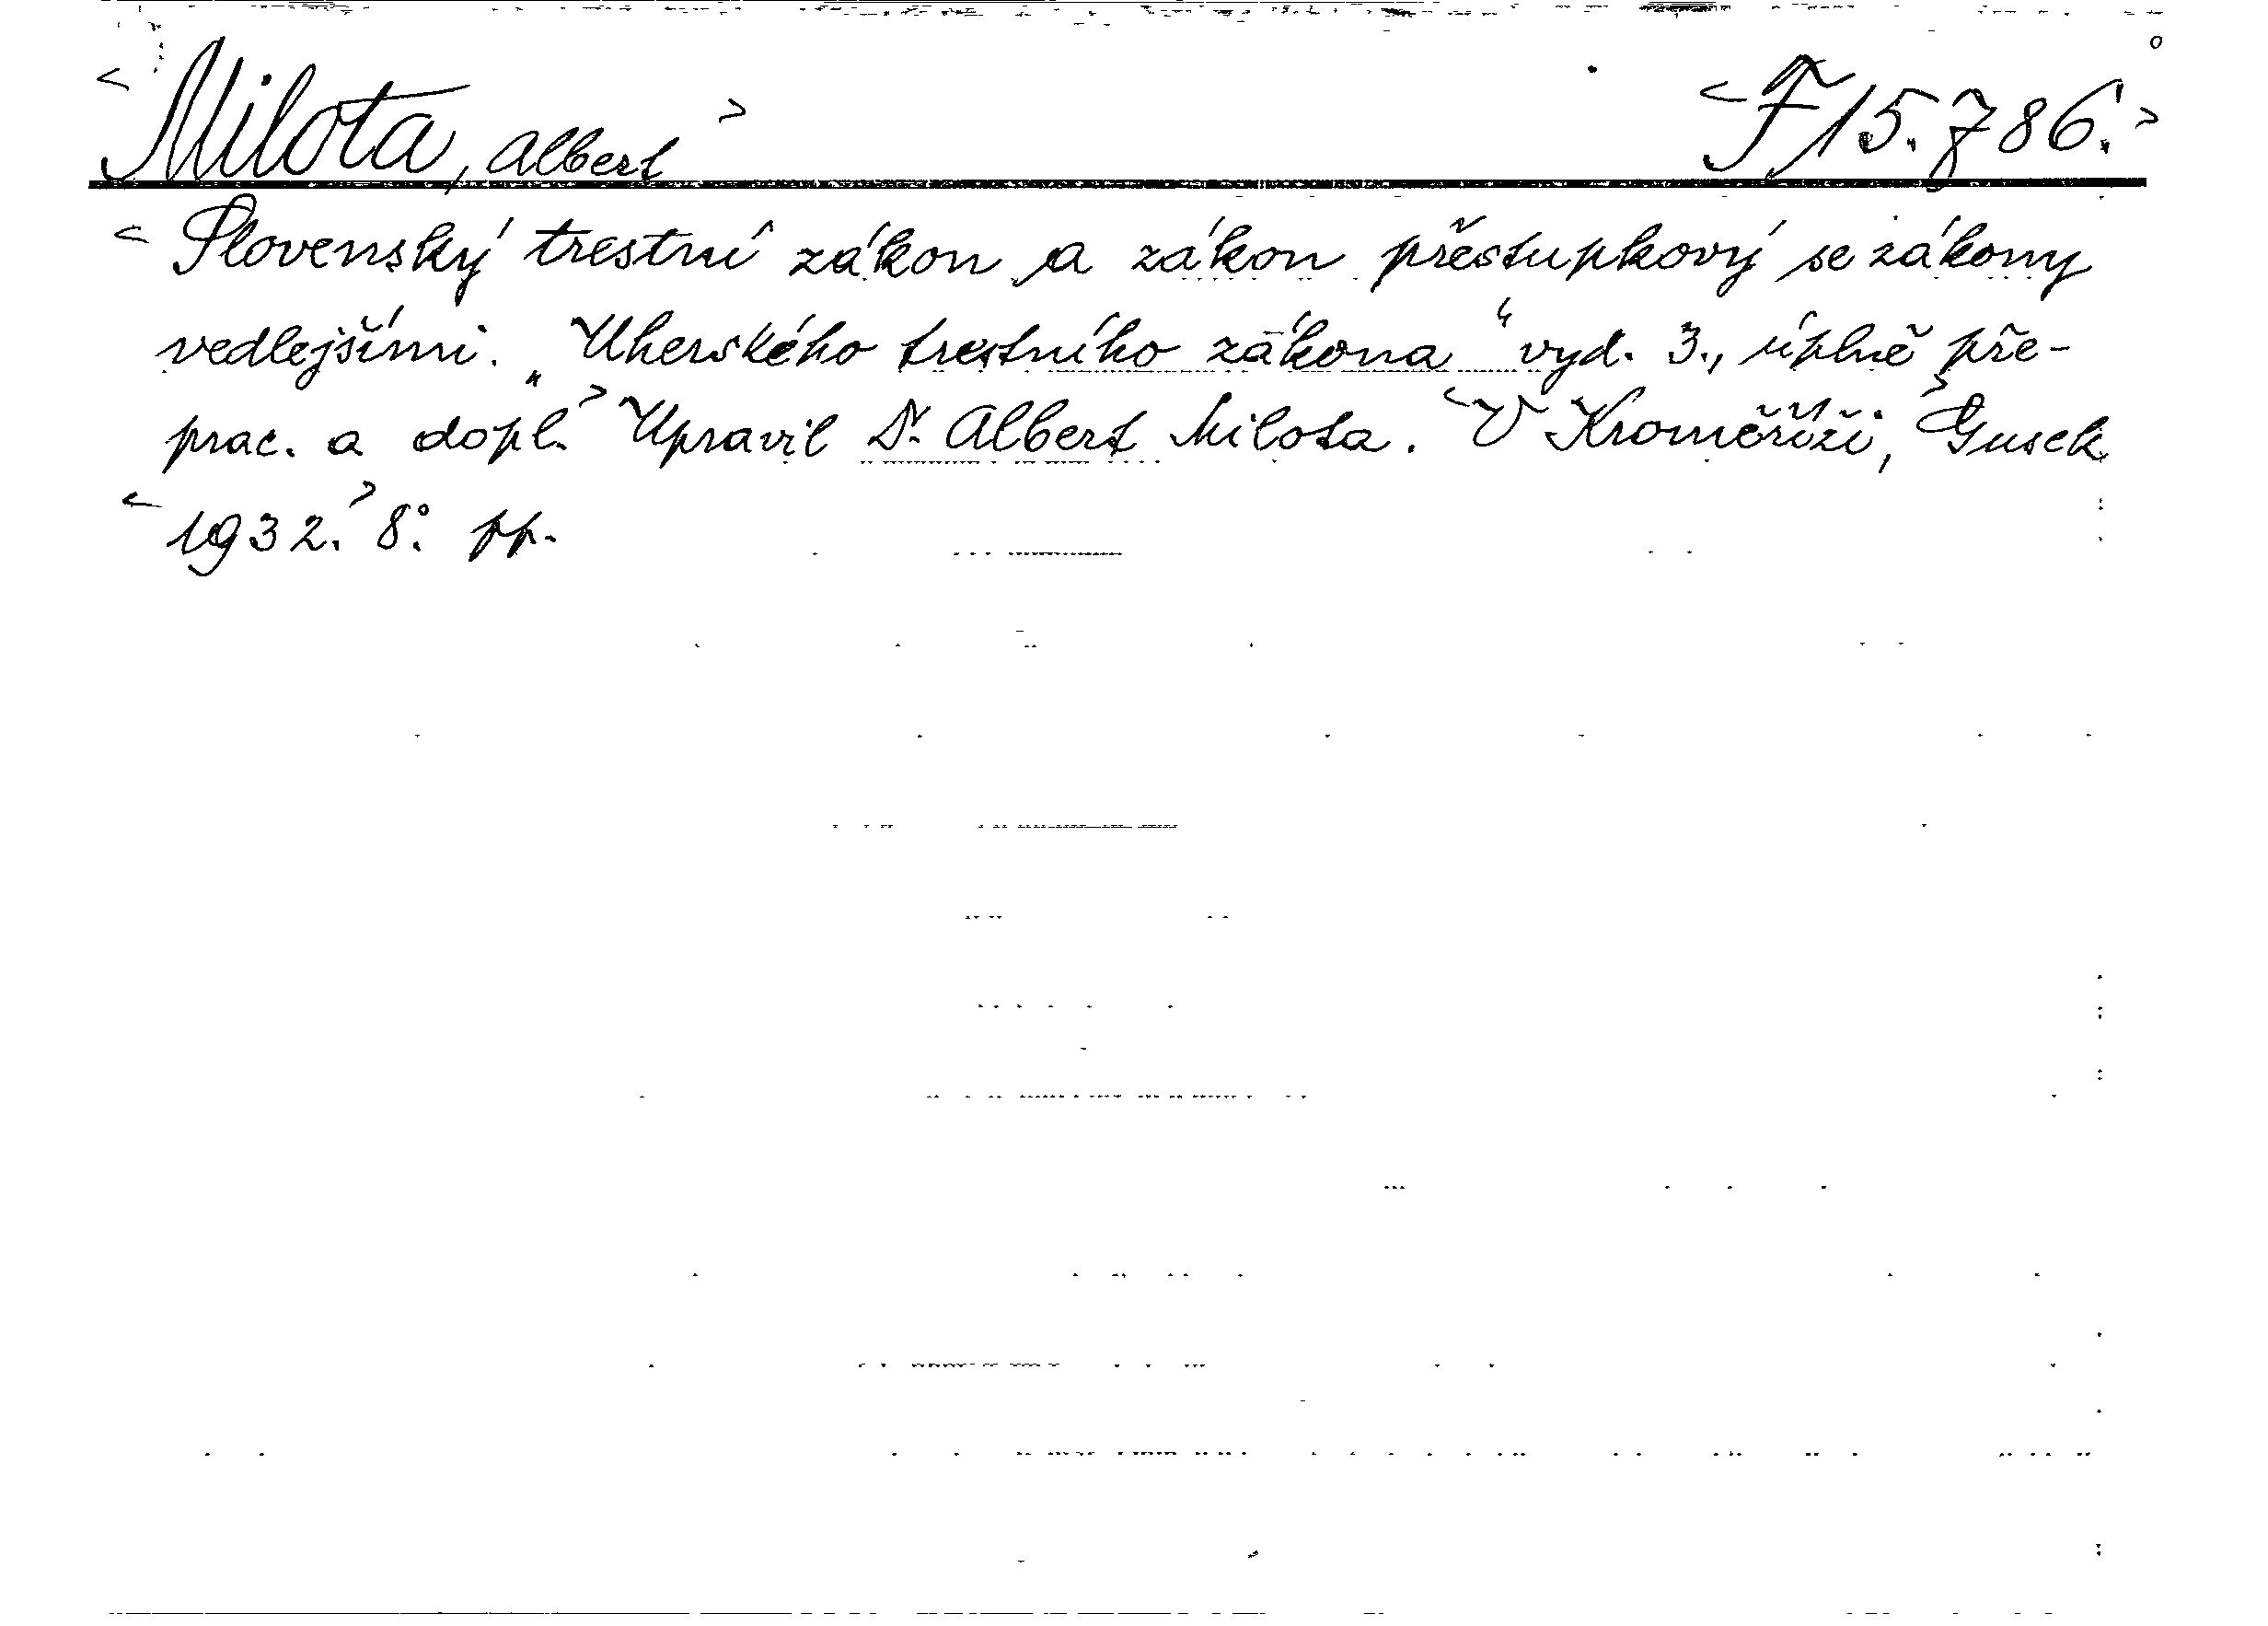 < Milota, Albert > < F 15.786. >
< Slovenský trestní zákon a zákon přestupkový se zákony
vedlejšími. „Uherského trestního zákona“ vyd. 3., úplně pře-
prac. a dopl. > Upravil Dr. Albert Milota. < V Kroměříži, > Gusek
< 1932. > 8°. pp.